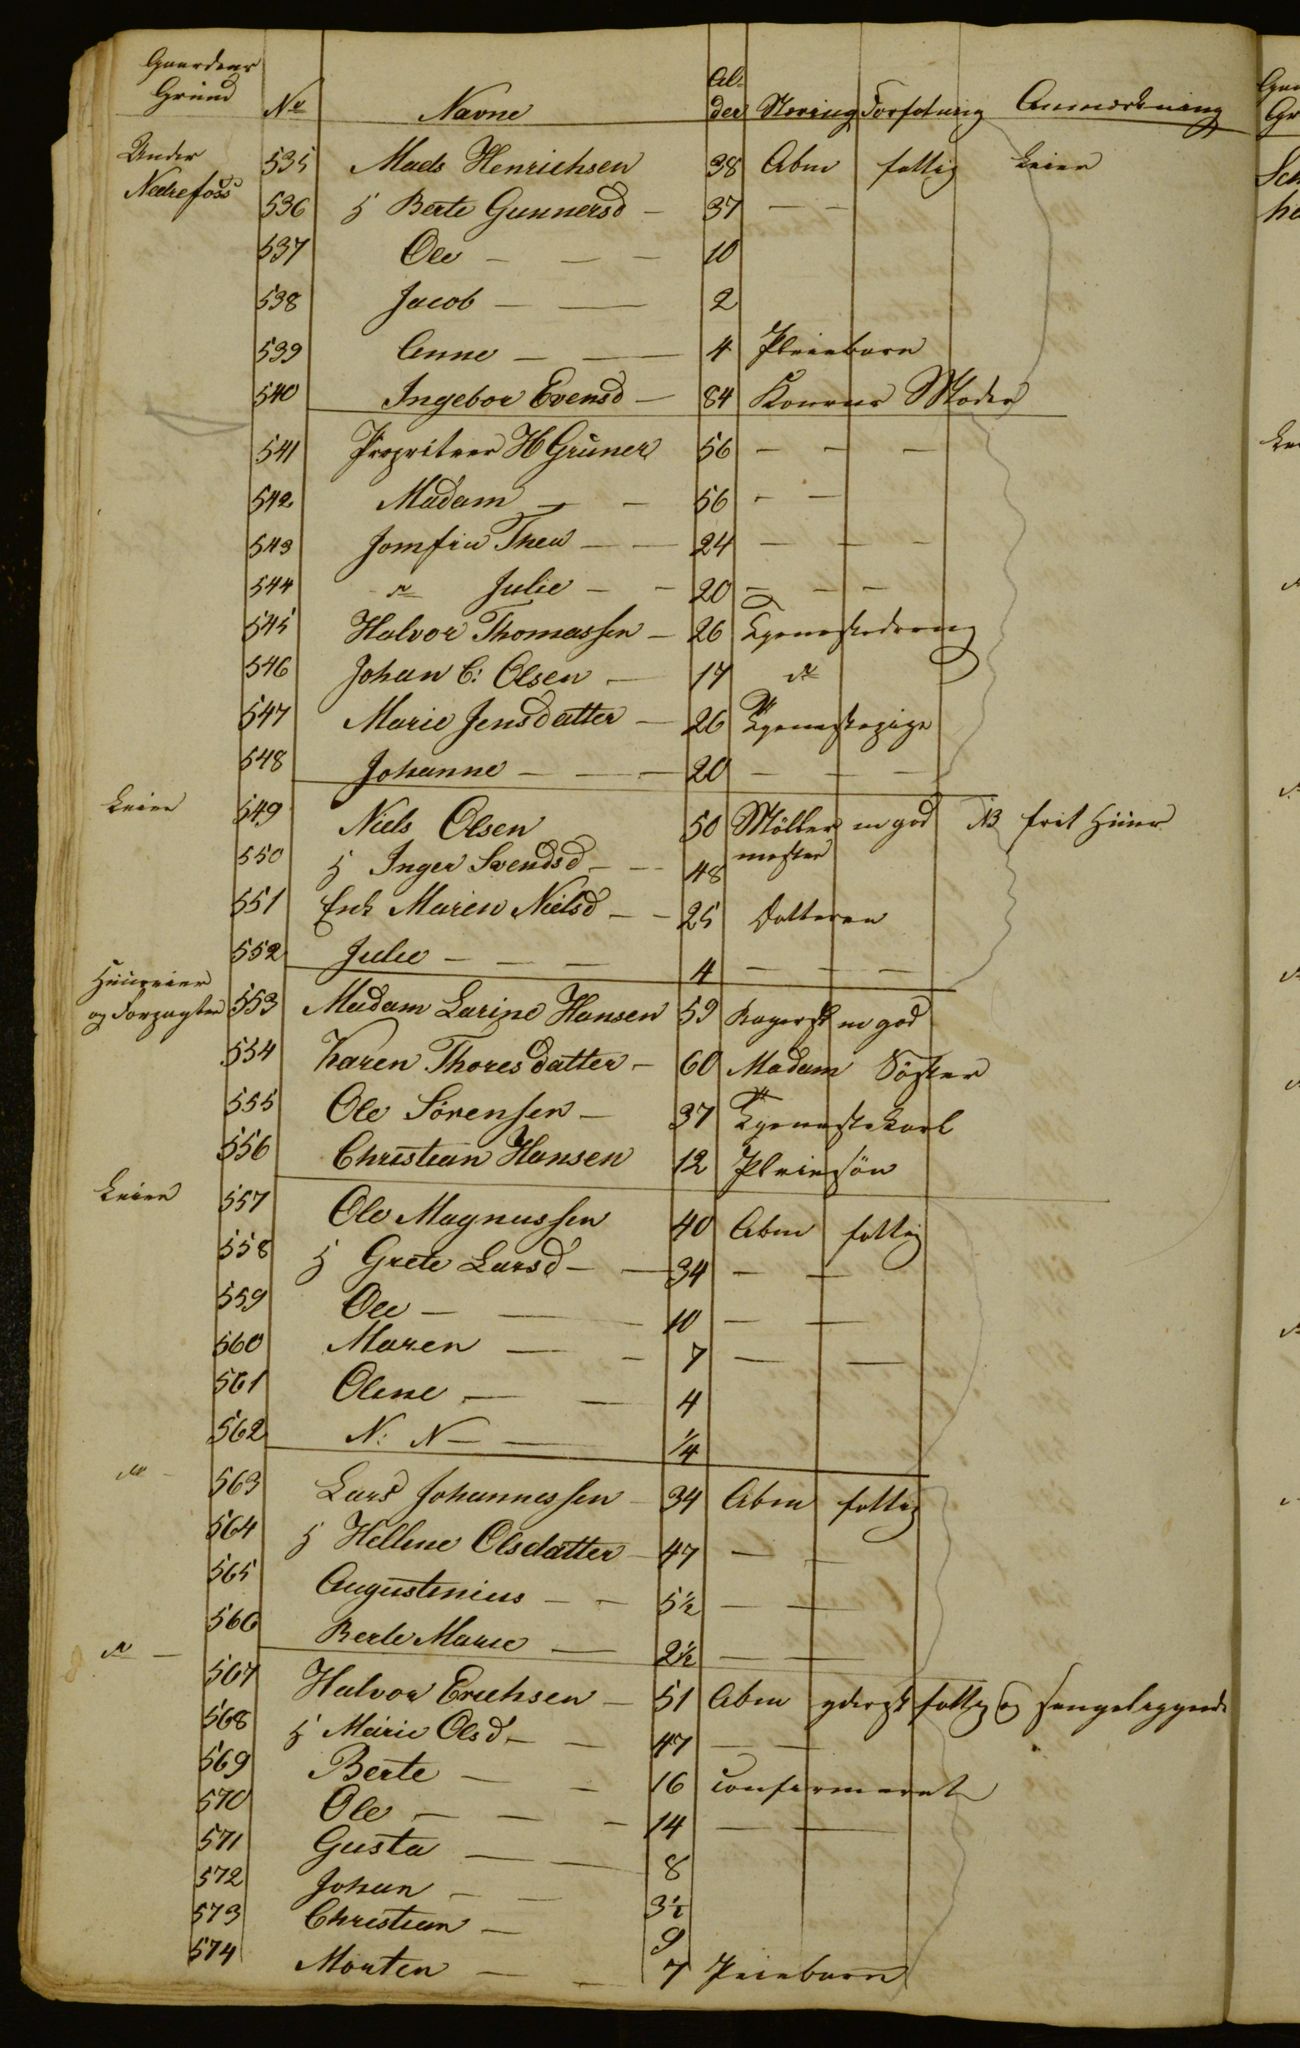 Gaardens Grund No Navne Alder Næring Forfatning Anmærkning
Under Nedrefoss 535 Mads Henrichsen 38 Abm fattig Leier
536 H Berte Gunnersd — 37 — —
537 Ole — — — 10
538 Jacob — — 2
539 Anne — — 4 Pleiebarn
540 Ingebor Evensd — 84 Konens Moder
541 Propritær H Grüner 56 — — —
542 Madam — — 56 — —
543 Jomfru Thea — — 24 — — —
544 " Julie — — 20 — — —
545 Halvor Thomassen — 26 Tjenestedreng
546 Johan C: Olsen — 17 "
547 Marie Jensdatter — 26 Tjenestepige
548 Johanne — — — 20 — — —
Leier 549 Niels Olsen 50 Möller mester m god NB frit Huus
550 H Inger Svendsd — — 48
551 Enk Maren Nielsd — — 25 Datteren
552 Julie — — — 4 — — —
Huuseier og Forpagter 553 Madam Larine Hansen 59 m god
554 Karen Thoresdatter — 60 Madam Söster
555 Ole Sørensen — 37 Tjenestekarl
556 Christian Hansen 12 Pleiesön
Leier 557 Ole Magnussen 40 Abm fattig
558 H Grete Larsd — — 34 — —
559 Ole — — — 10 — —
560 Maren — — 7 — —
561 Olene — — 4
562 N: N — — 1/4
" — 563 Lars Johannessen — 34 Abm fattig
564 H Hellene Olsdatter — 47 — —
565 Augustinius — — 5 1/2 — —
566 Berte Marie — 2 1/2 — —
" — 567 Halvor Erichsen — 51 Abm yderst fattig og sengeliggende
568 H Marie Olsd — — 47 — —
569 Berte — — 16 confirmeret
570 Ole — — — 14 — —
571 Gusta — — 8
572 Johan — — 3 1/2
573 Christian — 9
574 Morten — — 7 Pleiebarn